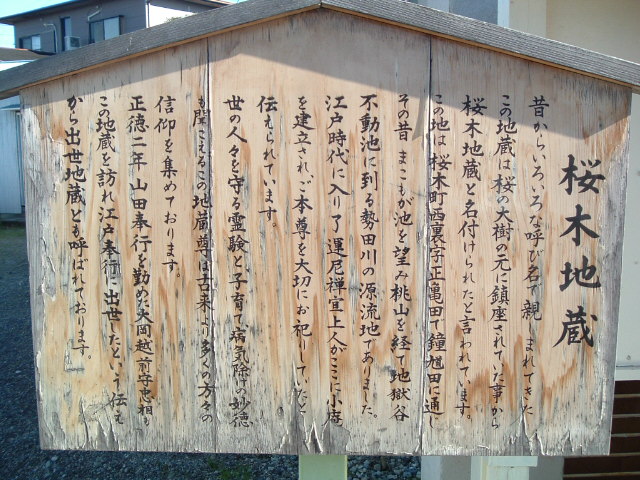 桜木地蔵
昔からいろいろな呼び名で親しまれてきた
この地蔵は桜の大樹の元に鎮座されていた事から
桜木地蔵と名付けられたと言われています。
この地は桜木町西裏字正亀田で鐘馗田に通じ
その昔まこもが池を望み桃山を経て地獄谷
不動池に到る勢田川の源流地でありました。
江戸時代に入り了運尼禅宣上人がここに小庵
を建立され、ご本尊を大切にお祀りしていたと
伝えられています。
世の人々を守る霊験と子育て病気除け妙徳
も聞こえるこの地蔵尊は古来より多くの方々の
信仰を集めております。
正徳二年山田奉行を勤めた大岡越前守忠相も
この地蔵を訪れ江戸奉行に出世したという伝え
から出世地蔵とも呼ばれております。